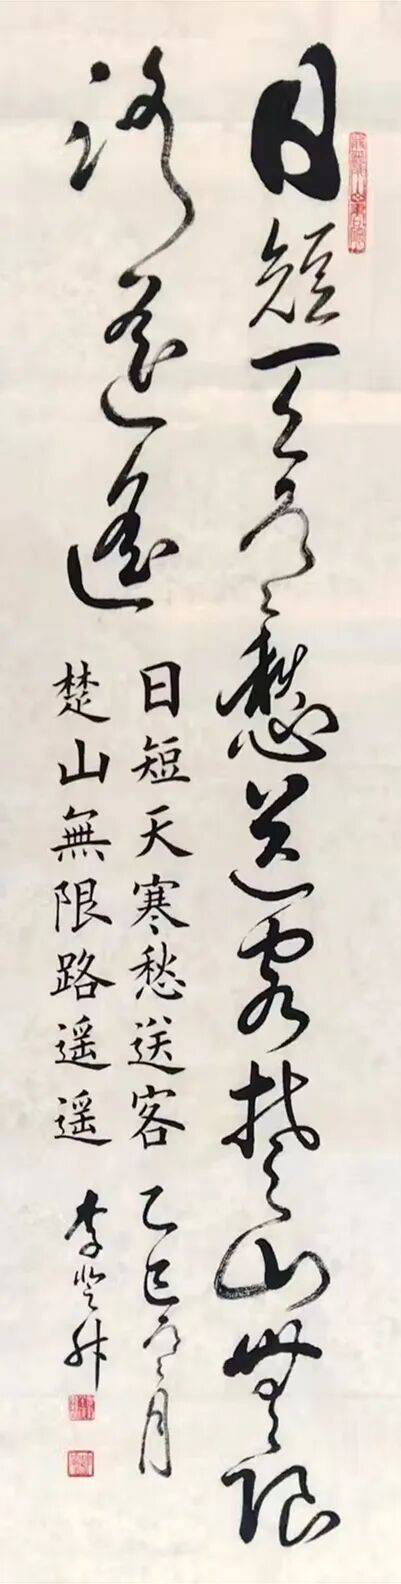 日短天寒愁送客楚山無限
路遥遥
日短天寒愁送客 乙巳寒月
楚山無限路遥遥 李